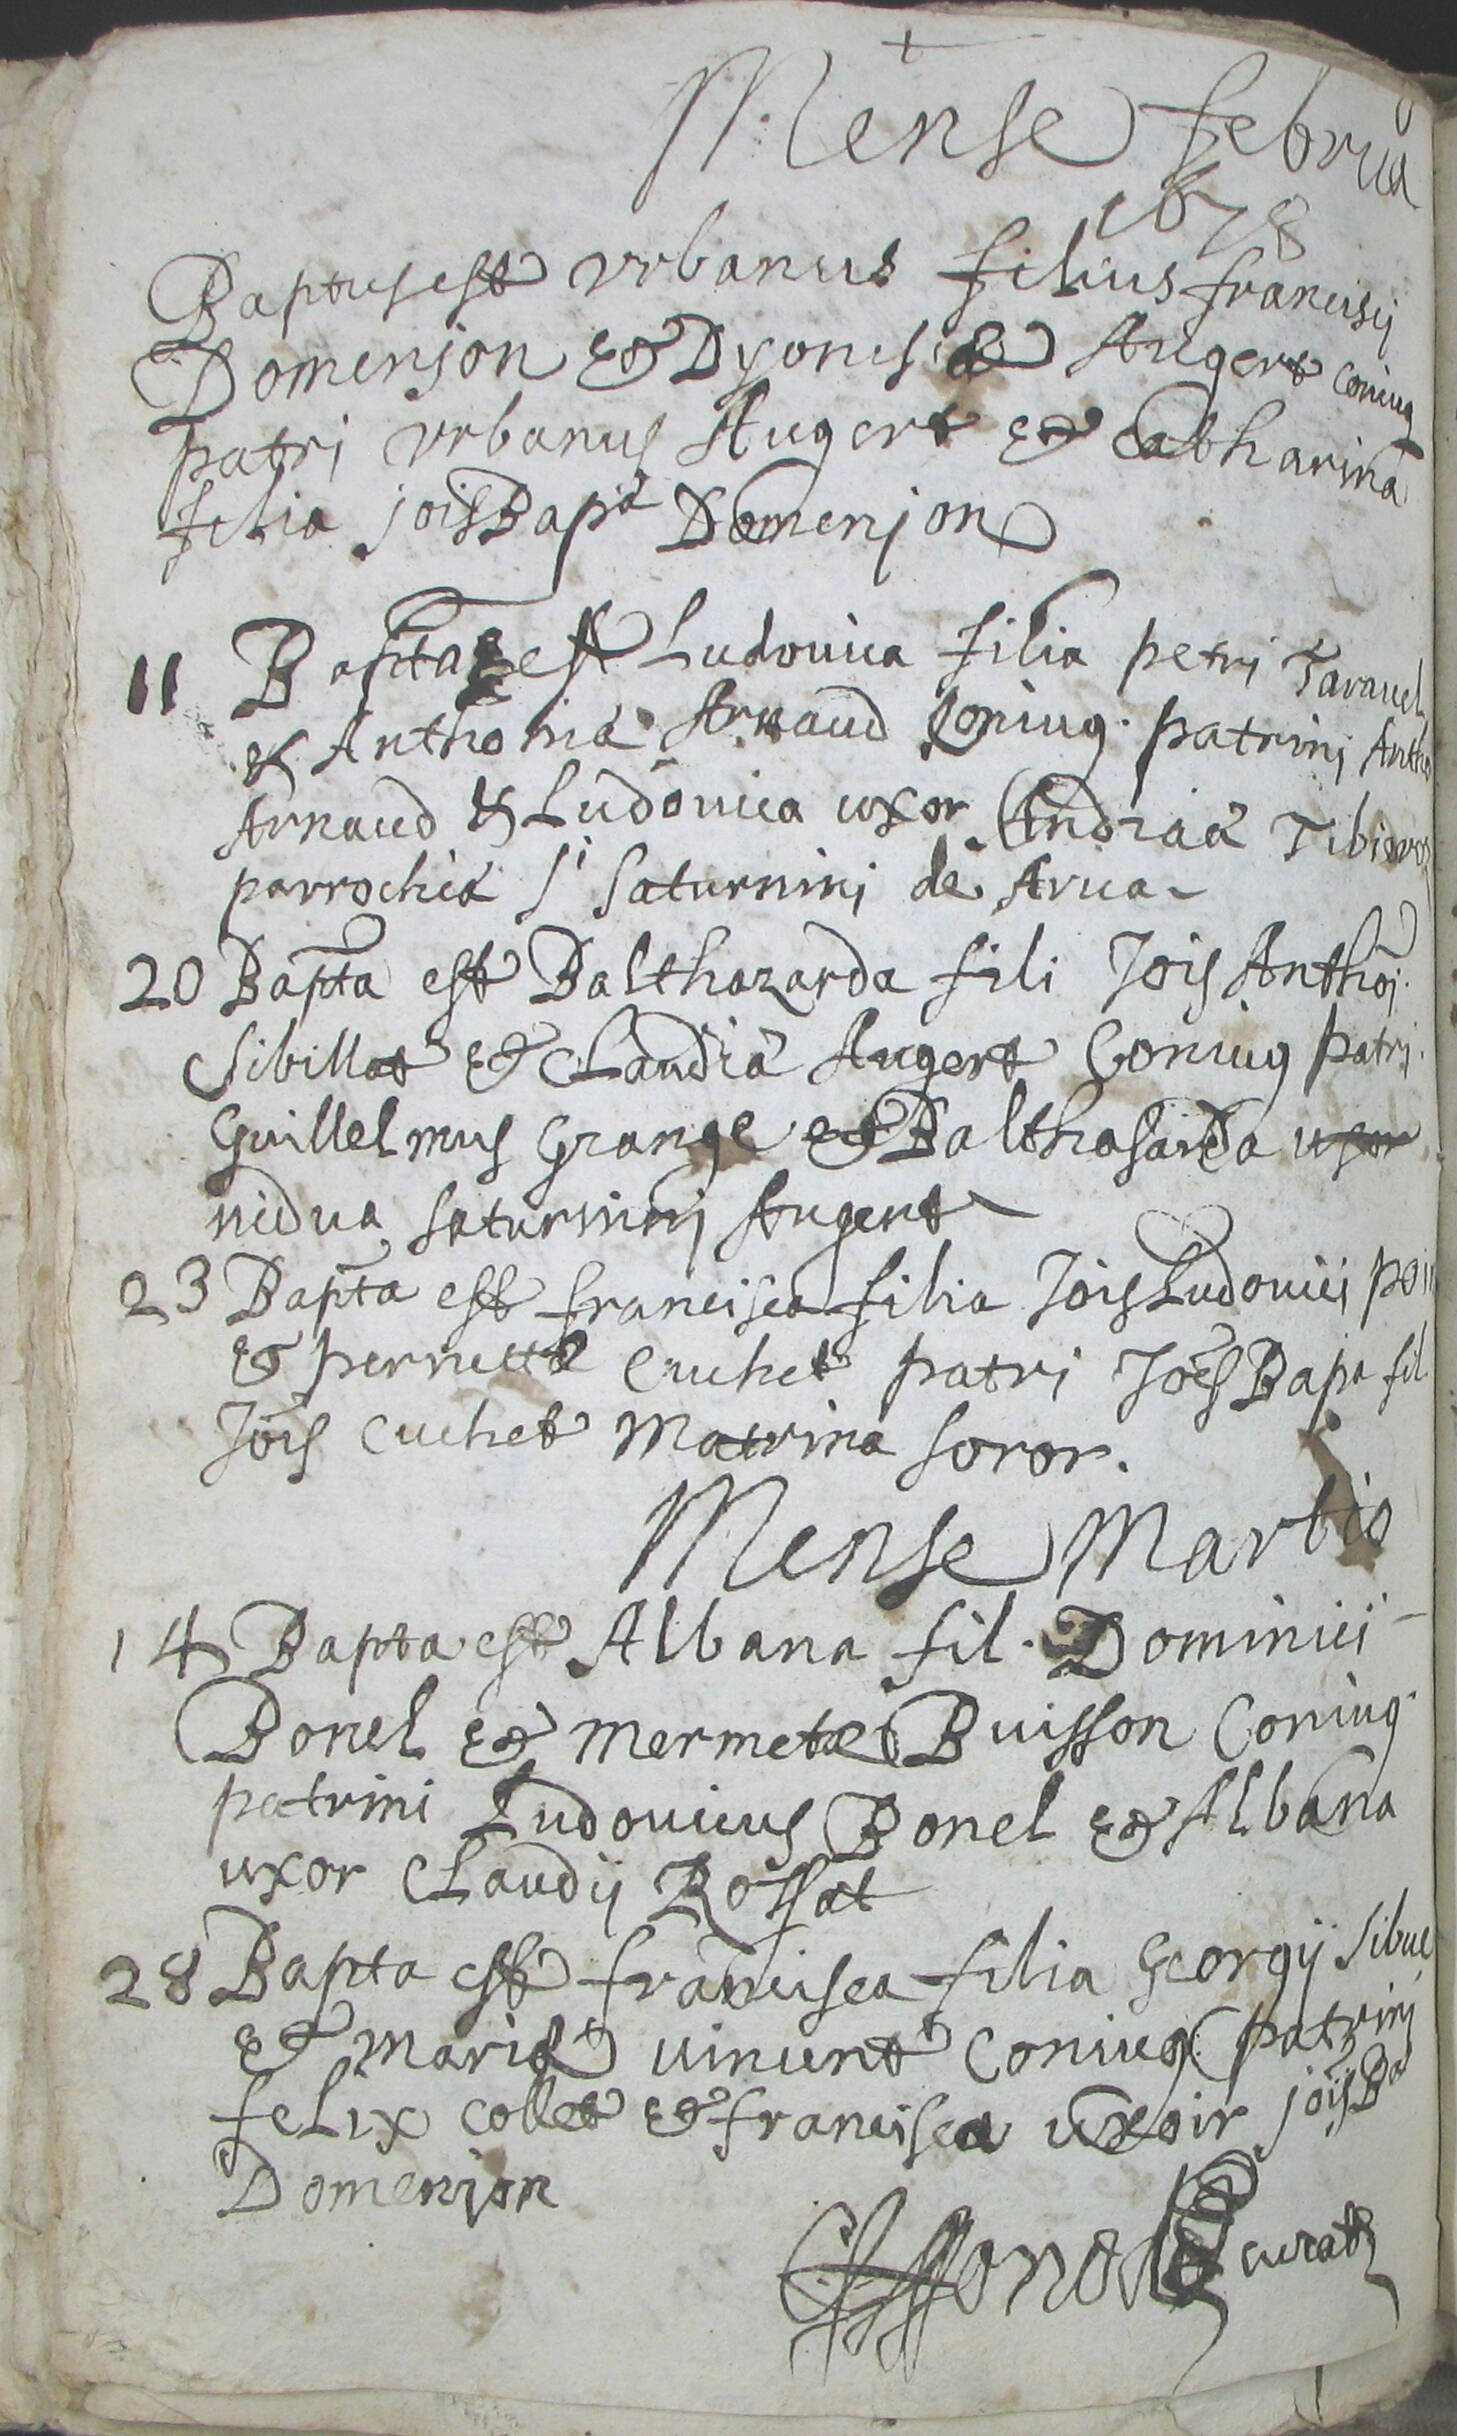 Mense februa
1678
Baptus est vrbanus filius francisij
Domenjon et Dyonisie Augert coniug
patrj vrbanus Augert et Catharina
filia joïs Bapa Domenjon
11 Bapta est Ludouica filia petri Tarauel
et Anthonia Arnaud Coniug. patrinj Antho
Arnaud et Ludouica uxor Andrea
parrochia Si Saturninj de Arua
20 Bapta est Balthazarda fili Joïs Anthoj.
Sibillat et Claudia Augert Coniug patrj.
Guillelmus Grange et Balthasarda uxor
uidua Saturninj Augert
23 Bapta est francisca filia Joïs Ludouici
et pernette Cuchet patri Joës Bapa fil.
Joïs Cuchet Matrina soror.
Mense Martio
14 Bapta est Albana fil. Dominici
Bonel et Mermete Buisson Coniug.
patrini Ludouicus Bonel et Albana
uxor Claudij Rossat
28 Bapta est francisca filia Georgij Sibue
et Marie uincent Coniug. patrinj
felix Collet et francisca uxoir joïs Ba
Domenjon
curatus